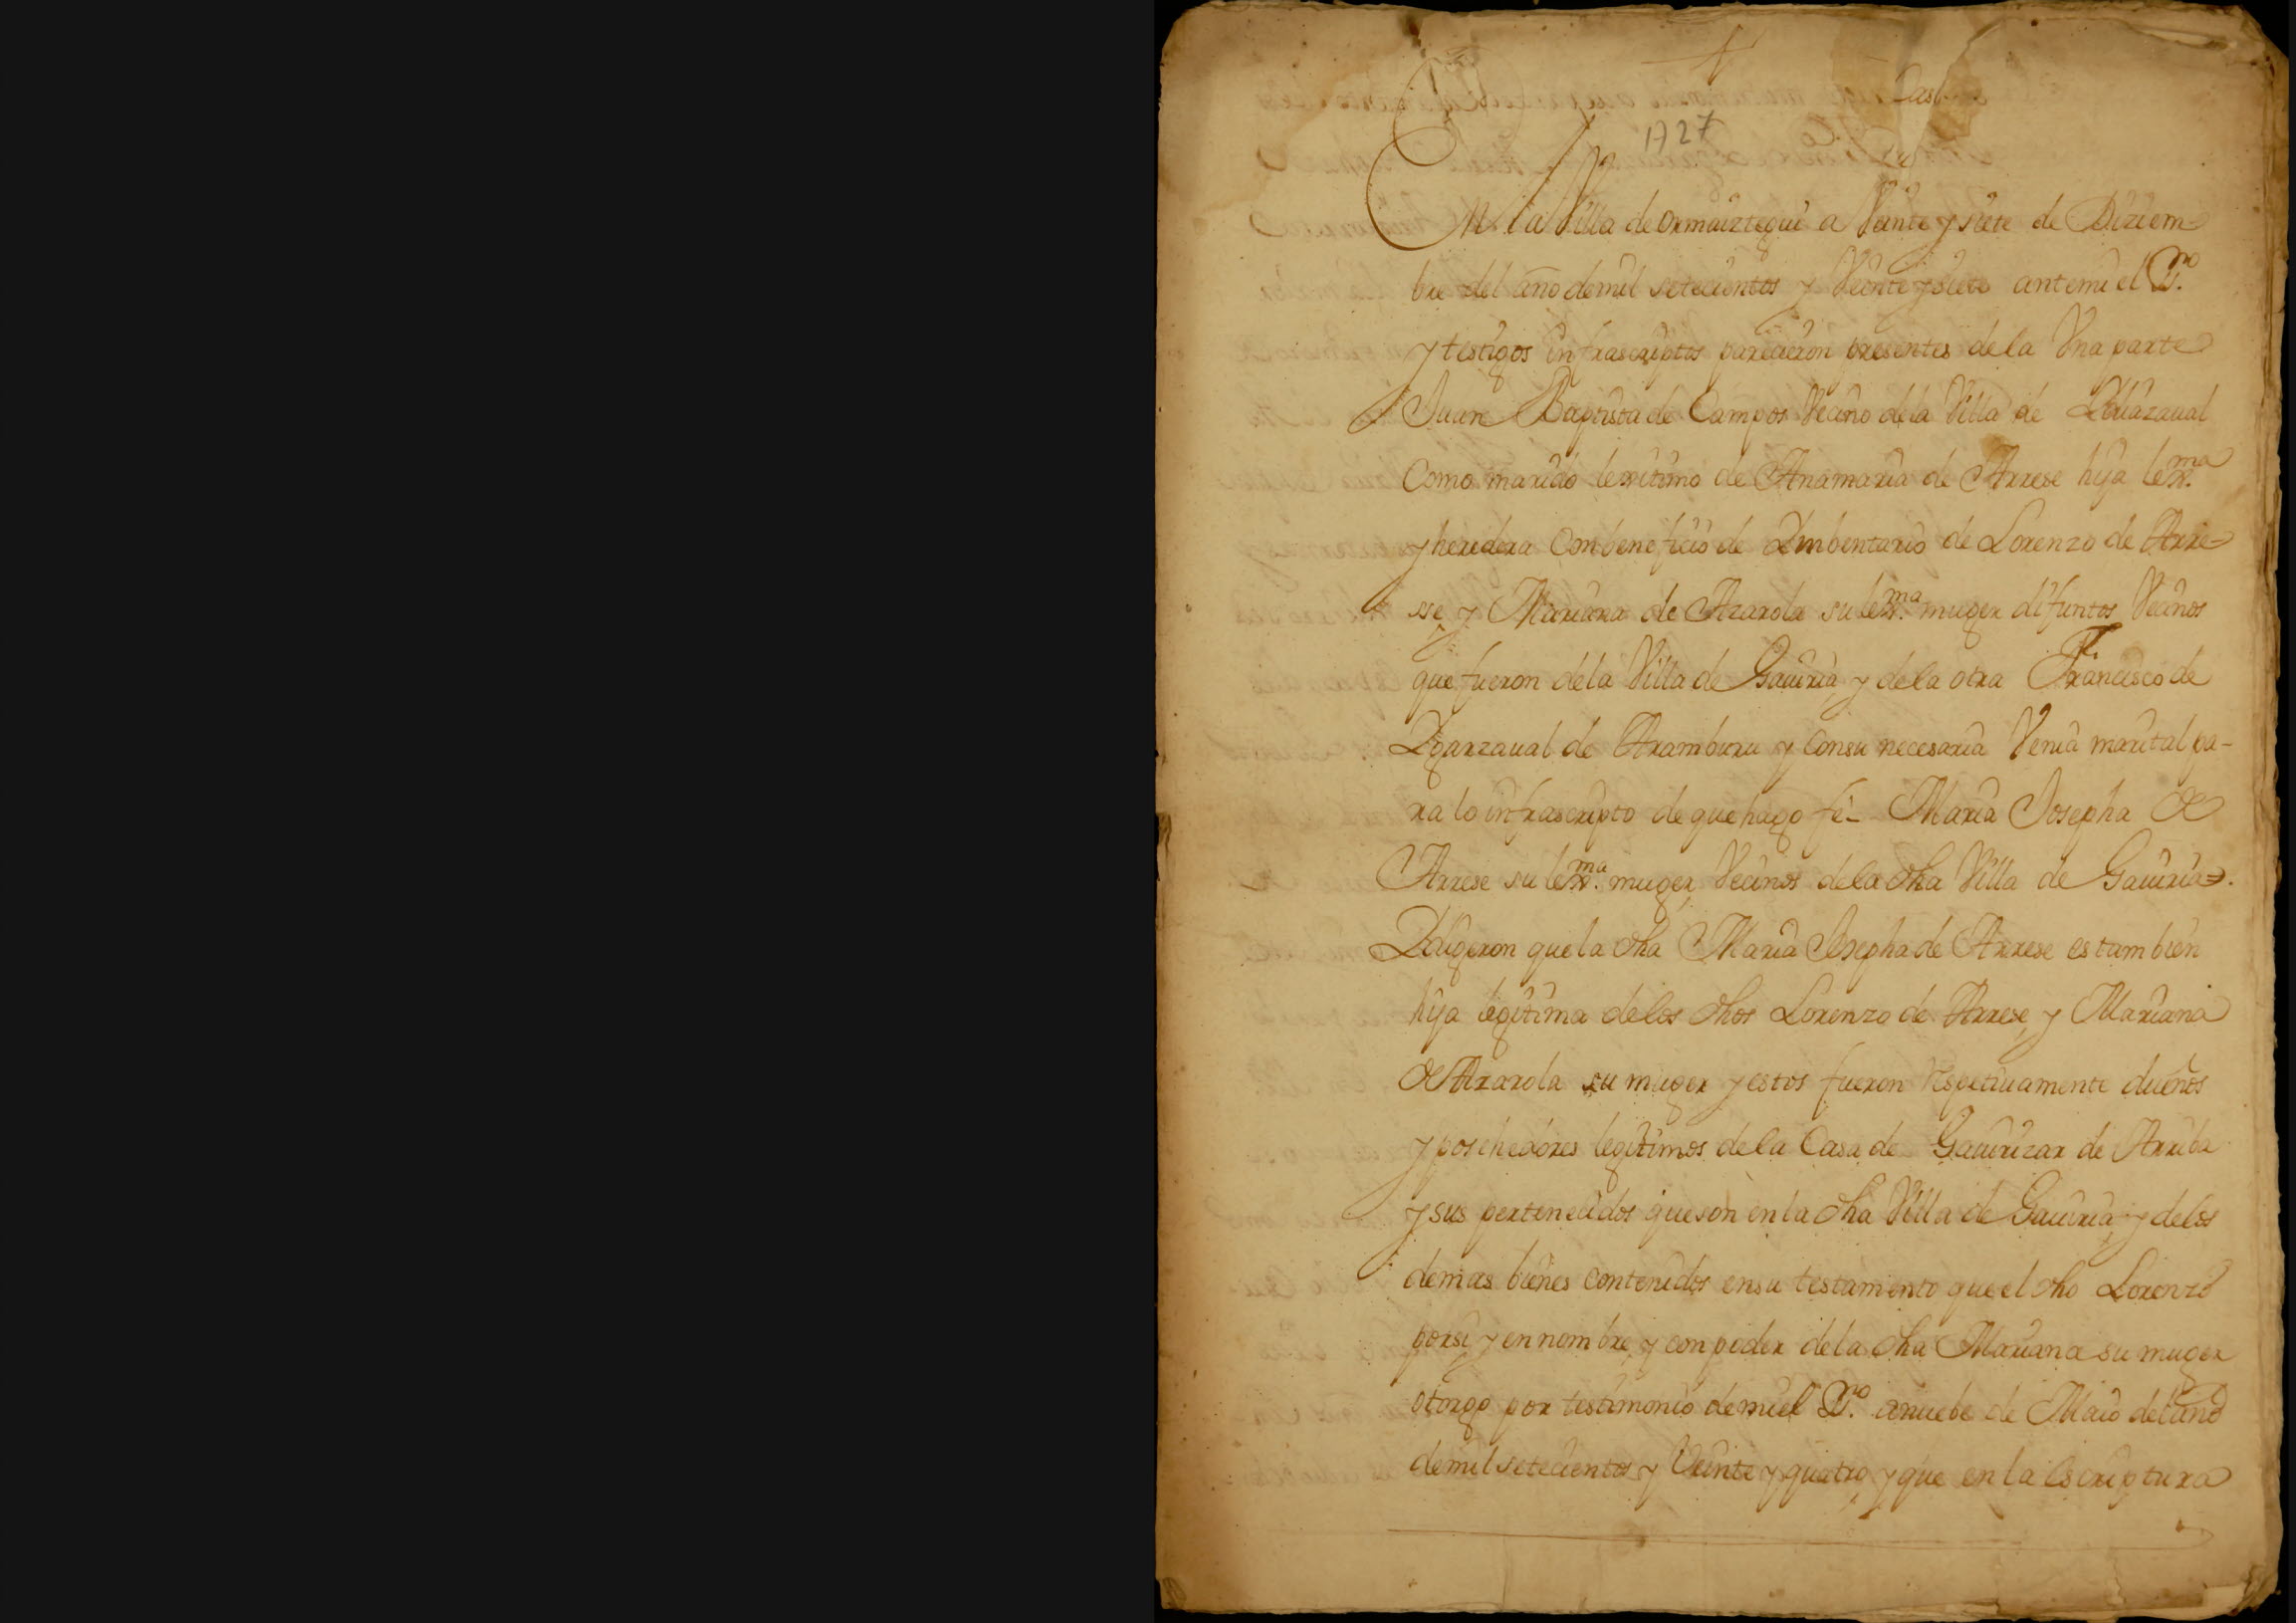 1727
En la Villa de Ormaiztegui a Veinte y siete de Diziem-
bre del año demil setecientos y Veinte y siete antemi el Ss.no
y testigos infrascriptos parecieron presentes dela Una parte
Juan Baptista de Campos Vecino dela Villa de Ydiazaual
Como marido lexitimo de Anamaria de Arrese hija lex.ma
y heredera Con beneficio de Ymbentario de Lorenzo de Arre-
sse y Mariana de Azarola su lex.ma muger difuntos Vecinos
que fueron dela Villa de Gauiria y dela otra Francisco de
Ygarzaual de Aramburu y Consu necesaria Venia marital pa-
ra lo infrascripto de que hago fe- Maria Josepha de
Arrese su lex.ma muger Vecinos dela dha Villa de Gauiria=.
Ydigeron que la dha Maria Josepha de Arrese es tambien
hija legitima delos dhos Lorenzo de Arrese, y Mariana
de Azarola su muger y estos fueron respetiuamente dueños
y posehedores legitimos dela Casa de Gauirizar de Arriba
y sus pertenecidos queson en la dha Villa de Gauiria, y delos
demas bienes contenidos ensu testamento que el dho Lorenzo
porsi, y en nombre, y con poder dela dha Mariana su muger
otorgo por testimonio demi el Ss.no a nuebe de Maio del año
demil setecientos y Veinte y quatro, y que en la escriptura